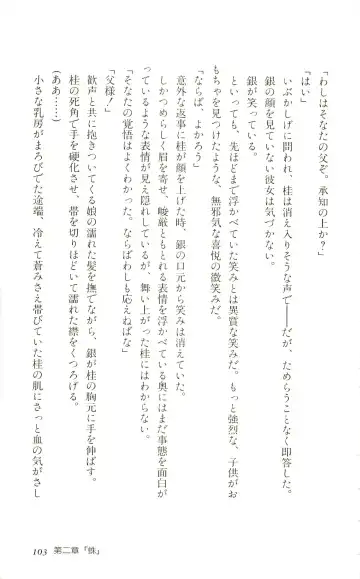 「わしはそなたの父ぞ。承知の上か？」
「はい」
いぶかしげに問われ、桂は消え入りそうな声で――だが、ためらうことなく即答した。
銀の顔を見ていない彼女は気づかない。
銀が笑っている。
といっても、先ほどまで浮かべていた笑みとは異質な笑みだ。もっと強烈な、子供がお
もちゃを見つけたような、無邪気な喜悦の微笑みだ。
「ならば、よかろう」
意外な返事に桂が顔を上げた時、銀の口元から笑みは消えていた。
しかつめらしく眉を寄せ、峻厳ともとれる表情を浮かべている奥にはまだ事態を面白が
っているような表情が見え隠れしているが、舞い上がった桂にはわからない。
「そなたの覚悟はよくわかった。ならばわしも応えねばな」
「父様！」
歓声と共に抱きついてくる娘の濡れた髪を撫でながら、銀が桂の胸元に手を伸ばす。
桂の死角で手を硬化させ、帯を切りほどいて濡れた襟をくつろげる。
（ああ……）
小さな乳房がまろびでた途端、冷えて蒼みさえ帯びていた桂の肌にさっと血の気がさし
103 第二章『蛛』